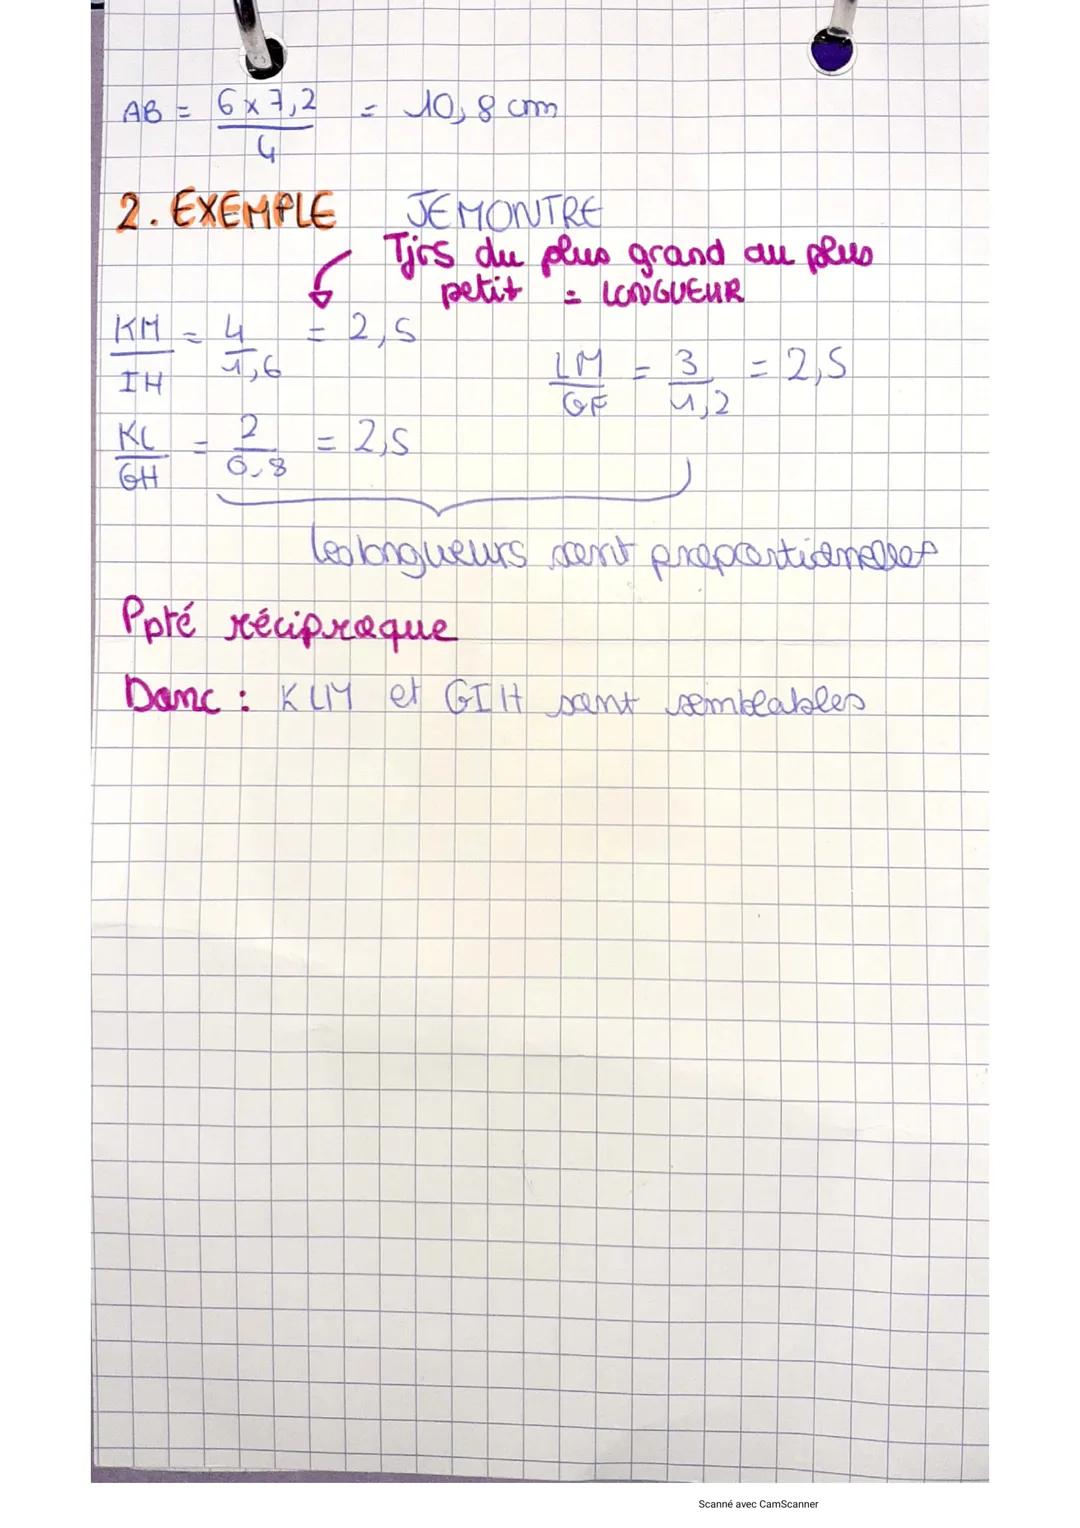 AB = 6 x 7,2 / 4 = 10,8 cm
2. EXEMPLE JE MONTRE
Tjrs du plus grand au plus
petit = LONGUEUR
KM / IH = 4 / 1,6 = 2,5
LM / GF = 3 / 1,2 = 2,5
KL / GH = 2 / 0,8 = 2,5
les longueurs sont proportionnelles
Ppté réciproque
Donc : KLM et GIH sont semblables
Scanné avec CamScanner